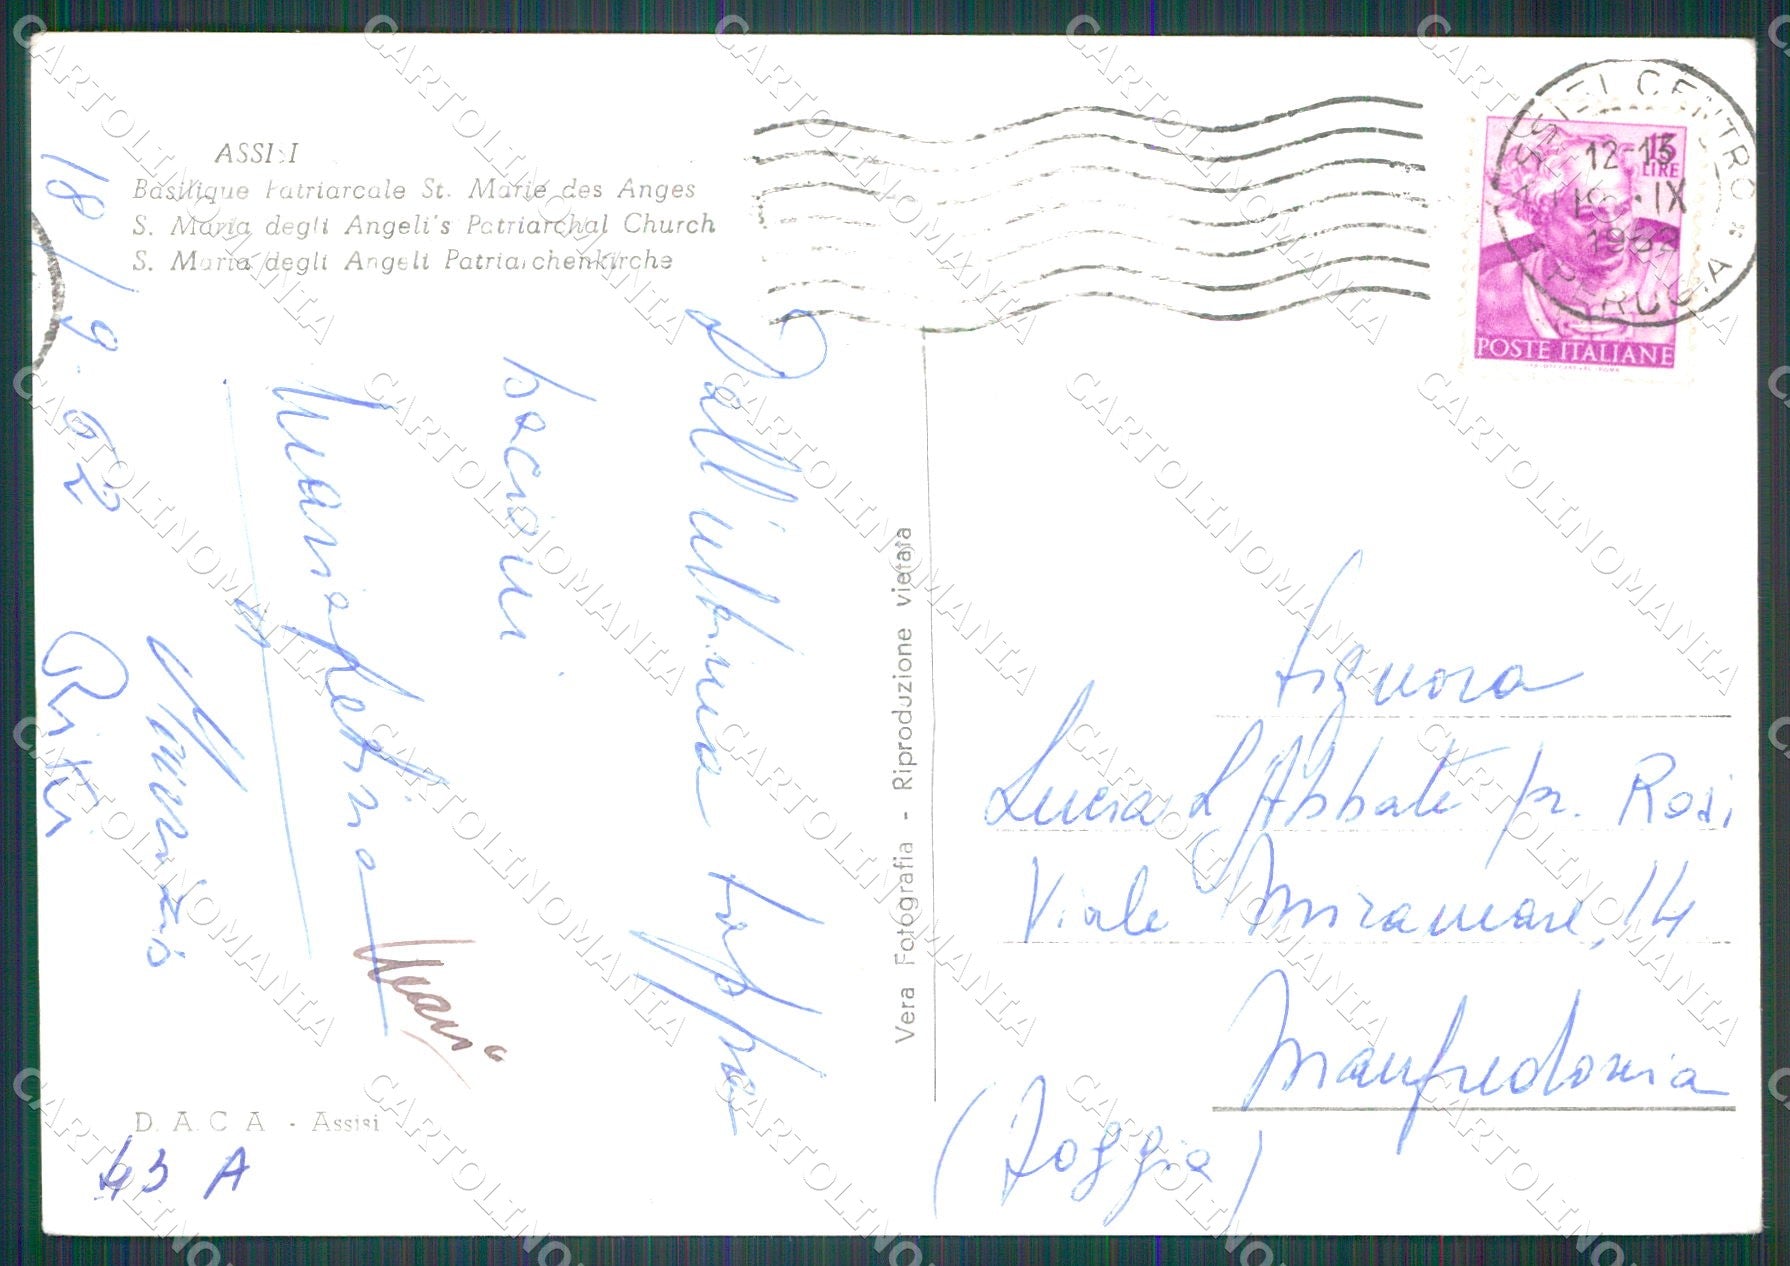 ASSISI
Basilique Patriarcale St. Marie des Anges
S. Maria degli Angeli's Patriarchal Church
S. Maria degli Angeli Patriarchenkirche
18/9.62
Dall'ultima tappa
bacioni
Maria
Nunzio
Maria
D. A. C. A. - Assisi
43 A
Vera Fotografia - Riproduzione vietata
12-13
IX
1962
PERUGIA
CENTRO
15
LIRE
POSTE ITALIANE
Signora
Lucia L'Abbate pr. Rosi
Viale Miramare, 14
Manfredonia
(Foggia)
CARTOLINOMANIA